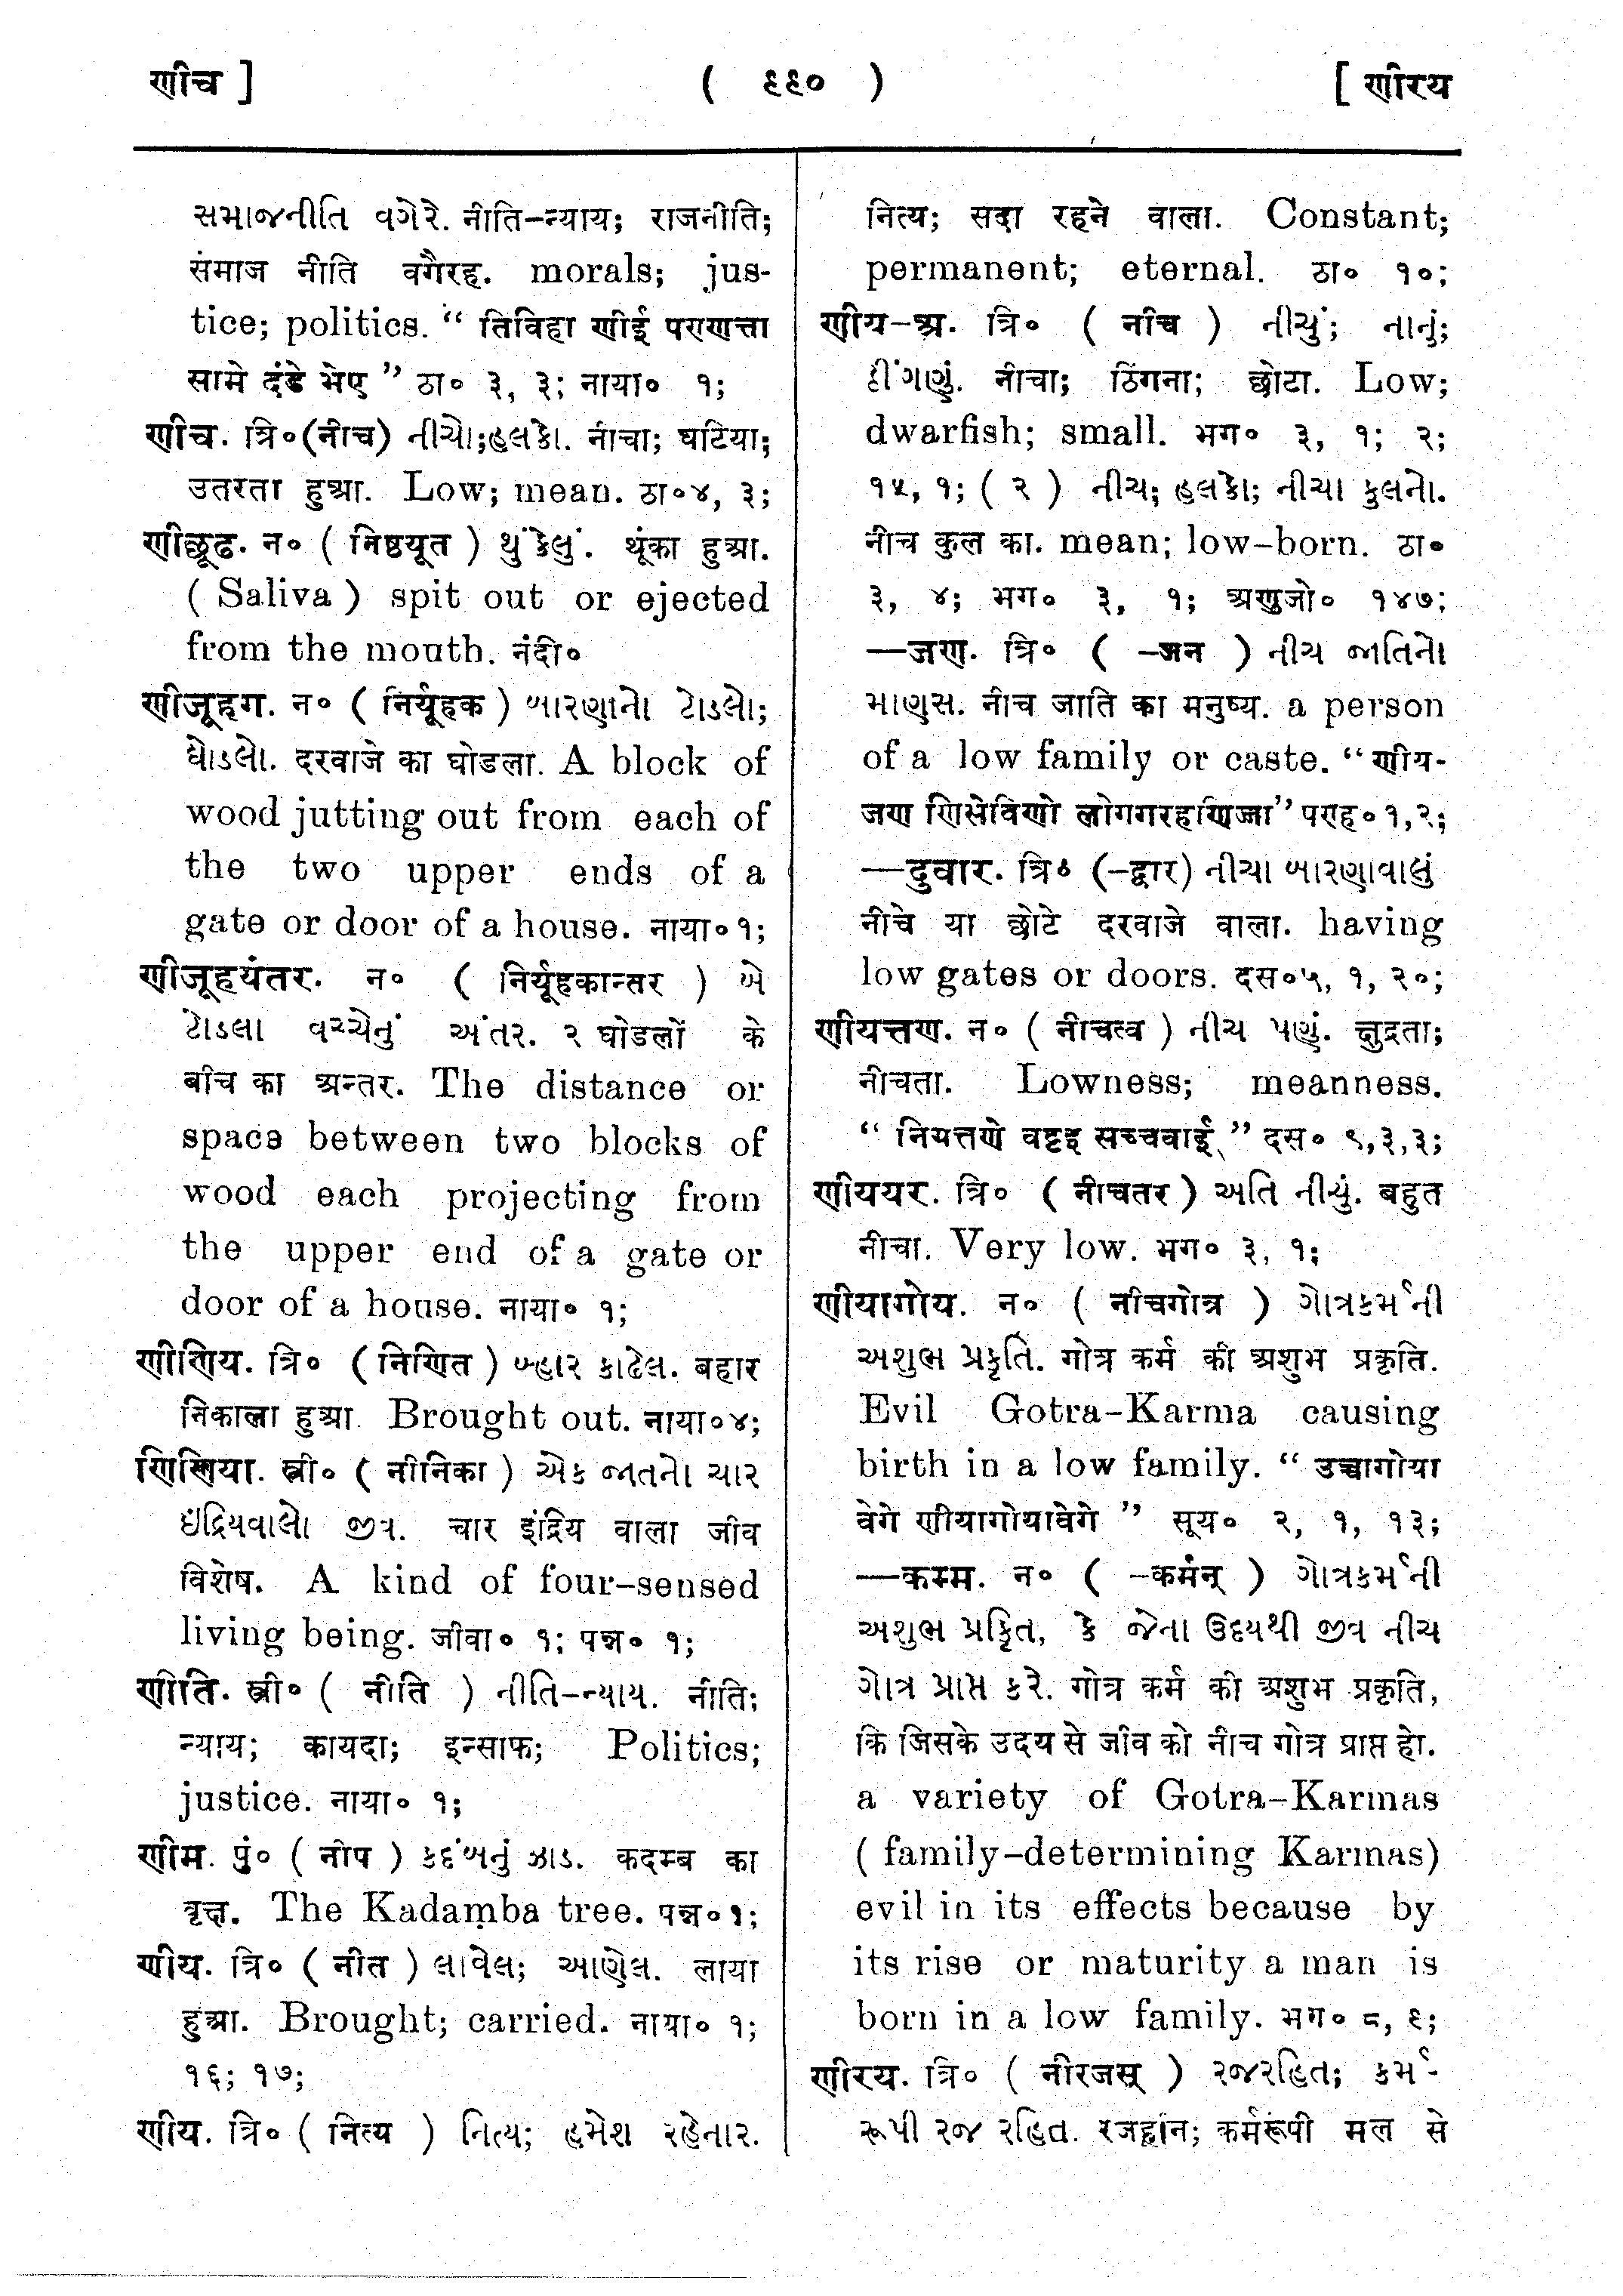 णीच ]
( ९९० )
[ णीरय
સમાજનીતિ વગેરે. नीति-न्याय; राजनीति;
संमाज नीति वगैरह. morals; jus-
tice; politics. “ तिविहा णीई पण्णत्ता
सामे दंडे भेए ” ठा० ३, ३; नाया० १;
णीच. त्रि०(नीच) નીચો;હલકો. नीचा; घटिया;
उतरता हुआ. Low; mean. ठा०४, ३;
णीछूढ. न० ( निष्ठयूत ) થુંકેલું. थूंका हुआ.
( Saliva ) spit out or ejected
from the mouth. नंदी०
णीजूहग. न० ( निर्यूहक ) બારણાનો ટોડલો;
ઘોડલો. दरवाजे का घोडला. A block of
wood jutting out from each of
the two upper ends of a
gate or door of a house. नाया०१;
णीजूहयंतर. न० ( निर्यूहकान्तर ) બે
ટોડલા વચ્ચેનું અંતર. २ घोडलों के
बीच का अन्तर. The distance or
space between two blocks of
wood each projecting from
the upper end of a gate or
door of a house. नाया० १;
णीणिय. त्रि० ( निणित ) બ્હાર કાઢેલ. बहार
निकाला हुआ. Brought out. नाया०४;
णिणिया. स्त्री० ( नीनिका ) એક જાતનો ચાર
ઇંદ્રિયવાલો જીવ. चार इंद्रिय वाला जीव
विशेष. A kind of four-sensed
living being. जीवा० १; पन्न० १;
णीति. स्त्री० ( नीति ) નીતિ-ન્યાય. नीति;
न्याय; कायदा; इन्साफ; Politics;
justice. नाया० १;
णीम. पुं० ( नीप ) કદંબનું ઝાડ. कदम्ब का
वृक्ष. The Kadaṃba tree. पन्न०१;
णीय. त्रि० ( नीत ) લાવેલ; આણેલ. लाया
हुआ. Brought; carried. नाया० १;
१६; १७;
णीय. त्रि० ( नित्य ) નિત્ય; હમેશ રહેનાર.
नित्य; सदा रहने वाला. Constant;
permanent; eternal. ठा० १०;
णीय-अ. त्रि० ( नीच ) નીચું; નાનું;
ઠીંગણું. नीचा; ठिंगना; छोटा. Low;
dwarfish; small. भग० ३, १; २;
१५, १; ( २ ) નીચ; હલકો; નીચા કુલનો.
नीच कुल का. mean; low-born. ठा०
३, ४; भग० ३, १; अणुजो० १४७;
—जण. त्रि० ( -जन ) નીચ જાતિનો
માણસ. नीच जाति का मनुष्य. a person
of a low family or caste. “ णीय-
जण णिसेविणो लोगगरहणिज्जा” पण्ह०१,२;
—दुवार. त्रि० (-द्वार) નીચા બારણાવાલું
नीचे या छोटे दरवाजे वाला. having
low gates or doors. दस०५, १, २०;
णीयत्तण. न० ( नीचत्व ) નીચ પણું. क्षुद्रता;
नीचता. Lowness; meanness.
“ नियत्तणे वट्टइ सच्चवाई ” दस० ९,३,३;
णीययर. त्रि० ( नीचतर ) અતિ નીચું. बहुत
नीचा. Very low. भग० ३, १;
णीयागोय. न० ( नीचगोत्र ) ગોત્રકર્મની
અશુભ પ્રકૃતિ. गोत्र कर्म की अशुभ प्रकृति.
Evil Gotra-Karma causing
birth in a low family. “ उच्चागोया
वेगे णीयागोयावेगे ” सूय० २, १, १३;
—कम्म. न० ( -कर्मन् ) ગોત્રકર્મની
અશુભ પ્રકૃિત, કે જેના ઉદયથી જીવ નીચ
ગોત્ર પ્રાપ્ત કરે. गोत्र कर्म की अशुभ प्रकृति,
कि जिसके उदय से जीव को नीच गोत्र प्राप्त हो.
a variety of Gotra-Karmas
( family-determining Karmas)
evil in its effects because by
its rise or maturity a man is
born in a low family. भग० ८, ९;
णीरय. त्रि० ( नीरजस् ) રજરહિત; કર્મ-
રૂપી રજ રહિત. रजहीन; कर्मरूपी मल से